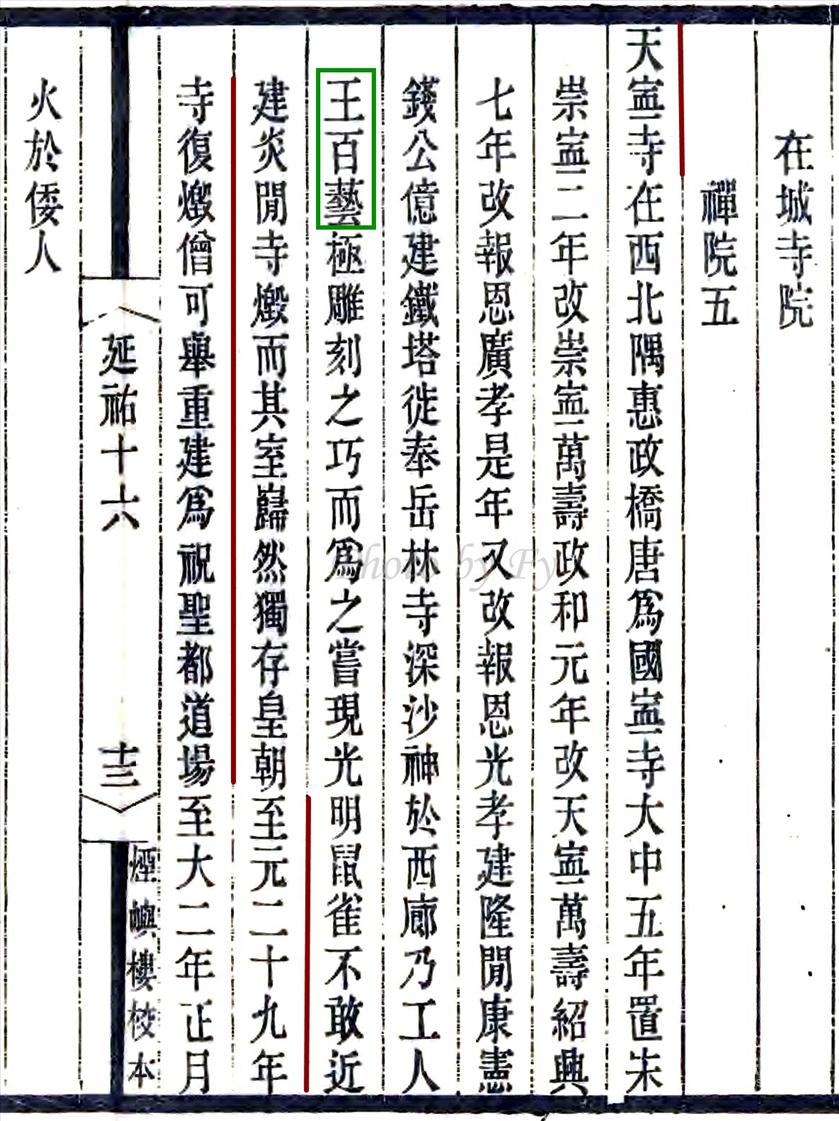 在城寺院
禪院五
天寧寺在西北隅惠政橋唐爲國寧寺大中五年置宋
崇寧二年改崇寧萬壽政和元年改天寧萬壽紹興
七年改報恩廣孝是年又改報恩光孝建隆閒康憲
錢公億建鐵塔徙奉岳林寺深沙神於西廊乃工人
王百藝極雕刻之巧而爲之嘗現光明鼠雀不敢近
建炎閒寺燬而其室巋然獨存皇朝至元二十九年
寺復燬僧可舉重建爲祝聖都道場至大二年正月
煙嶼樓校本
延祐十六 十三
火於倭人
Photo by Fy